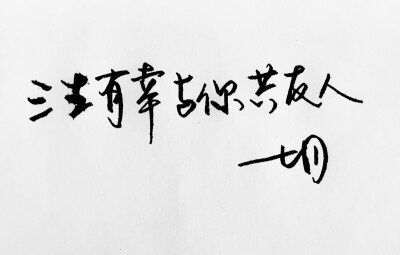 三生有幸与你共友人
一切